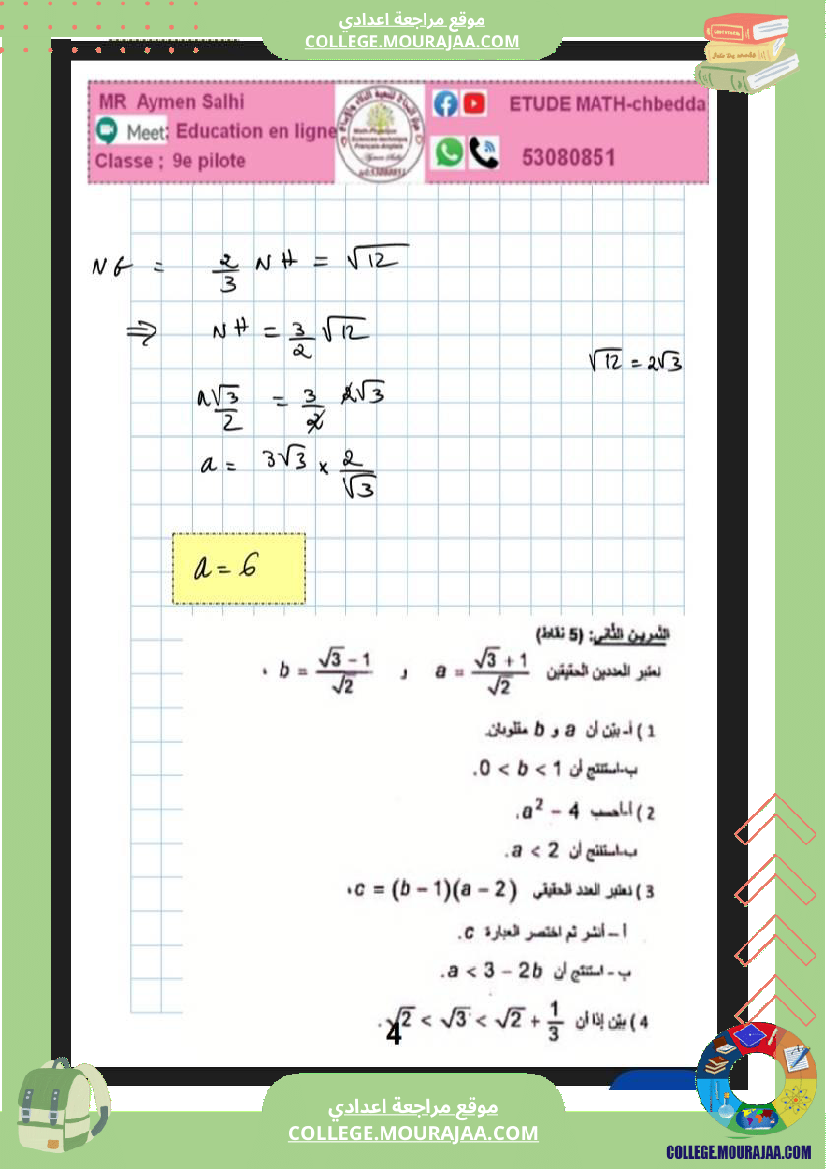 موقع مراجعة اعدادي
COLLEGE.MOURAJAA.COM
MR Aymen Salhi
Meet: Education en ligne
Classe ; 9e pilote
ETUDE MATH-chbedda
53080851
NG = 2/3 NH = √12
⇒ NH = 3/2 √12
√12 = 2√3
a√3/2 = 3/2 2√3
a = 3√3 × 2/√3
a = 6
التمرين الثاني: (5 نقاط)
نعتبر العددين الحقيقين a = (√3 + 1)/√2 و b = (√3 − 1)/√2 .
1 ) أ- بيّن أن a و b مقلوبان.
ب-استنتج أن 0 < b < 1.
2 ) أ-احسب a² − 4.
ب-استنتج أن a < 2.
3 ) نعتبر العدد الحقيقي c = (b − 1)(a − 2).
أ – أنشر ثم اختصر العبارة c.
ب - استنتج أن a < 3 − 2b.
4 ) بيّن إذا أن √2 < √3 < √2 + 1/3 .
4
موقع مراجعة اعدادي
COLLEGE.MOURAJAA.COM
COLLEGE.MOURAJAA.COM